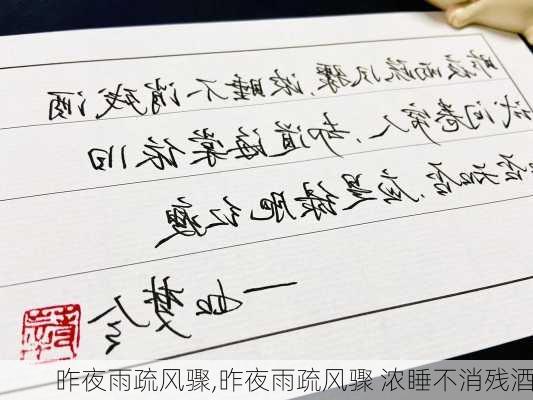 昨夜雨疏风骤 浓睡不消残酒
试问卷帘人 却道海棠依旧
知否知否 应是绿肥红瘦
昨夜雨疏风骤,昨夜雨疏风骤 浓睡不消残酒